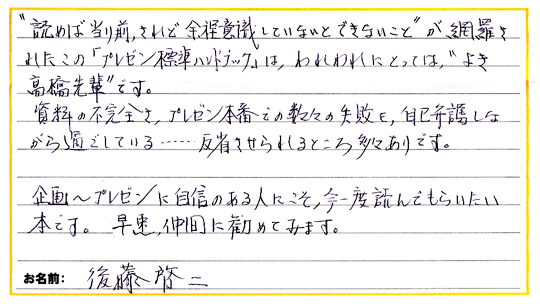 "読めば当り前、されど余程意識していないとできないこと"が網羅さ
れたこの「プレゼン標準ハンドブック」は、われわれにとっては、"よき
高橋先輩"です。
資料の不完全さ、プレゼン本番での数々の失敗を、自己弁護しな
がら過ごしている……反省させられるところ多々ありです。
企画〜プレゼンに自信のある人にこそ、今一度読んでもらいたい
本です。 早速、仲間に勧めてみます。
お名前: 後藤啓二